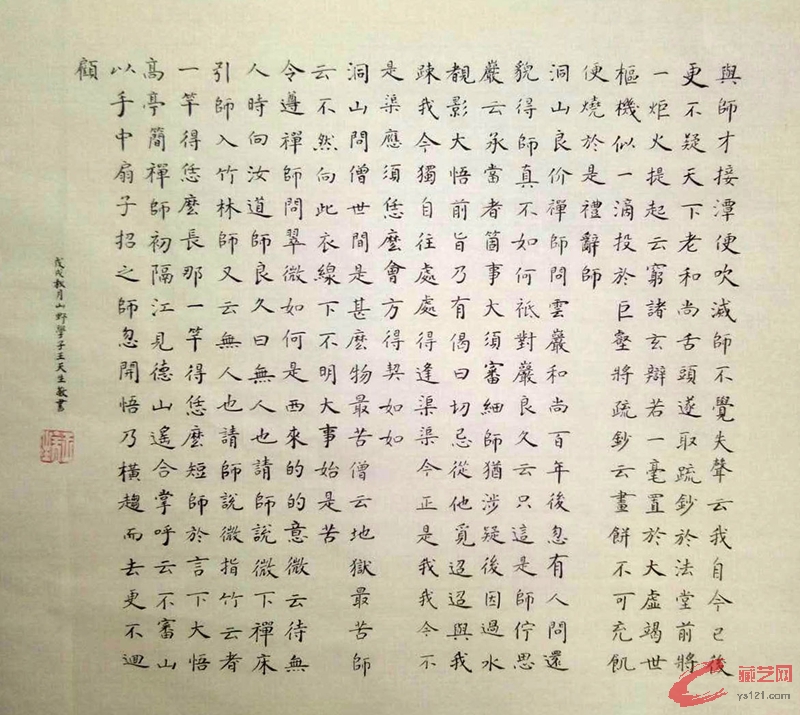 與師才接潭便吹滅師不覺失聲云我自今已後
更不疑天下老和尚舌頭遂取疏鈔於法堂前將
一炬火提起云窮諸玄辯若一毫置於太虛竭世
樞機似一滴投於巨壑將疏鈔云畫餅不可充飢
便燒於是禮辭師
洞山良价禪師問雲巖和尚百年後忽有人問還
貌得師真不如何祇對巖良久云只這是師佇思
巖云承當者箇事大須審細師猶涉疑後因過水
覩影大悟前旨乃有偈曰切忌從他覓迢迢與我
疎我今獨自往處處得逢渠渠今正是我我今不
是渠應須恁麼會方得契如如
洞山問僧世間是甚麼物最苦僧云地獄最苦師
云不然向此衣線下不明大事始是苦
令遵禪師問翠微如何是西來的的意微云待無
人時向汝道師良久曰無人也請師說微下禪床
引師入竹林師又云無人也請師說微指竹云者
一竿得恁麼長那一竿得恁麼短師於言下大悟
高亭簡禪師初隔江見德山遙合掌呼云不審山
以手中扇子招之師忽開悟乃橫趨而去更不迴
顧
戊戌秋月山野學子王天生敬書
藏艺网
ys121.com